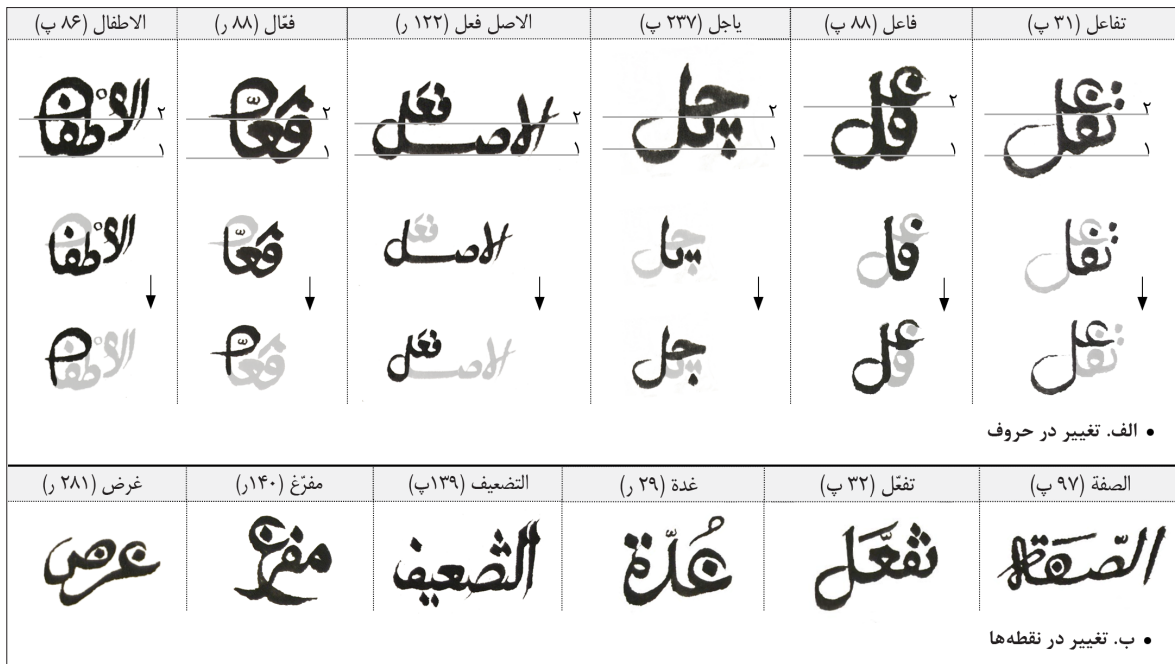 تفاعل (۳۱ پ) فاعل (۸۸ پ) یاجل (۲۳۷ پ) الاصل فعل (۱۲۲ ر) فعّال (۸۸ ر) الاطفال (۸۶ پ)
۲ ۲ ۲ ۲ ۲ ۲
۱ ۱ ۱ ۱ ۱ ۱
• الف. تغییر در حروف
الصفة (۹۷ پ) تفعّل (۳۲ پ) غدة (۲۹ ر) التضعیف (۱۳۹پ) مفرّغ (۱۴۰ر) غرض (۲۸۱ ر)
الصّفة تفعّل غُدّة التضعیف مفرغ غرض
• ب. تغییر در نقطه‌ها